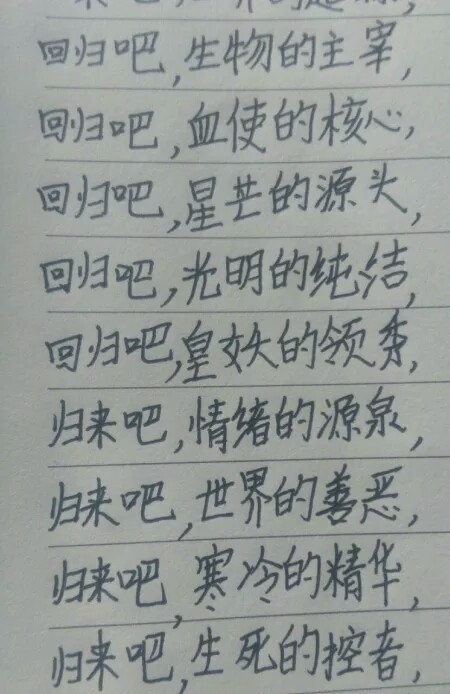 回归吧,生物的主宰,
回归吧,血使的核心,
回归吧,星芒的源头,
回归吧,光明的纯结,
回归吧,皇妖的领秀,
归来吧,情绪的源泉,
归来吧,世界的善恶,
归来吧,寒冷的精华,
归来吧,生死的控者,